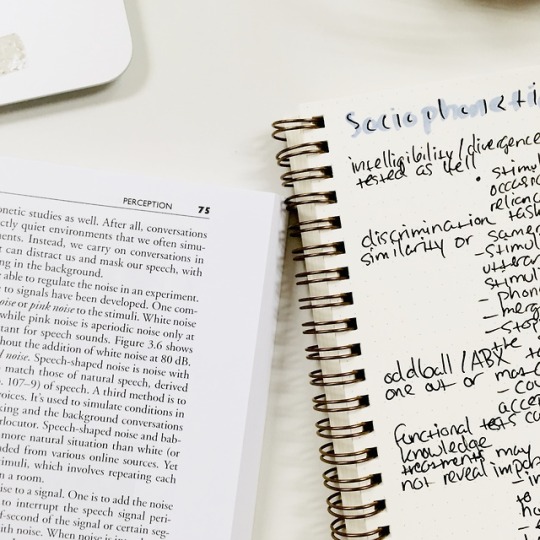 PERCEPTION 75
onetic studies as well. After all, conversations
ctly quiet environments that we often simu-
ments. Instead, we carry on conversations in
t can distract us and mask our speech, with
ng in the background.
able to regulate the noise in an experiment.
to signals have been developed. One com-
noise or pink noise to the stimuli. White noise
while pink noise is aperiodic noise only at
tant for speech sounds. Figure 3.6 shows
hout the addition of white noise at 80 dB.
d noise. Speech-shaped noise is noise with
match those of natural speech, derived
. 107–9) of speech. A third method is to
voices. It's used to simulate conditions in
king and the background conversations
rlocutor. Speech-shaped noise and bab-
more natural situation than white (or
ded from various online sources. Yet
timuli, which involves repeating each
n a room.
ise to a signal. One is to add the noise
to interrupt the speech signal peri-
f-second of the signal or certain seg-
ith noise. When noise is
Sociophoneti
intelligibility/divergence
tested as well
• stimul
occasio
relianc
discrimination task
similarity or same
- stimul
utteran
stimul
- phon
- merg
- stop
the
oddball/ABX to
one out or matc
- cou
acce
functional tests ca
knowledge
treatments may
not reveal impor
- in
to
ho
- e